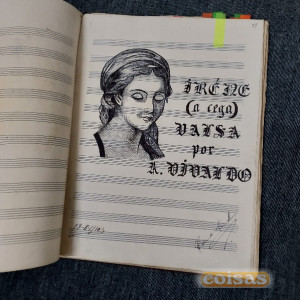 IRÉNE
(a cega)
VALSA
por
A. VIVALDO
coisas